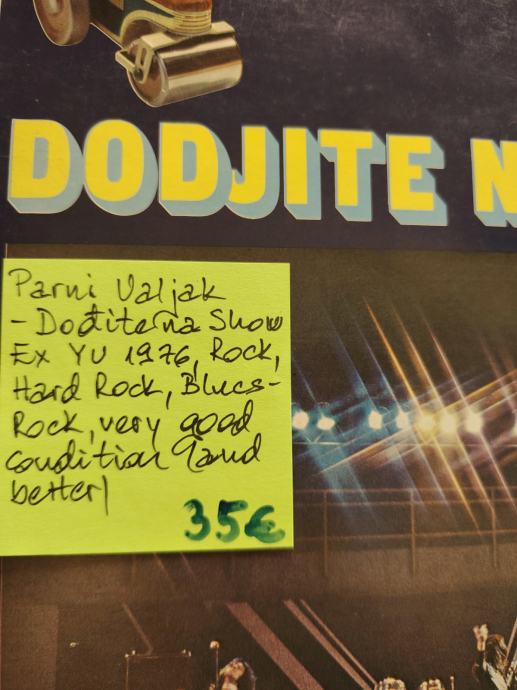 DODJITE N
Parni Valjak
- Dođite na Show
Ex YU 1976, Rock,
Hard Rock, Blues-
Rock, very good
condition (and
better)
35€